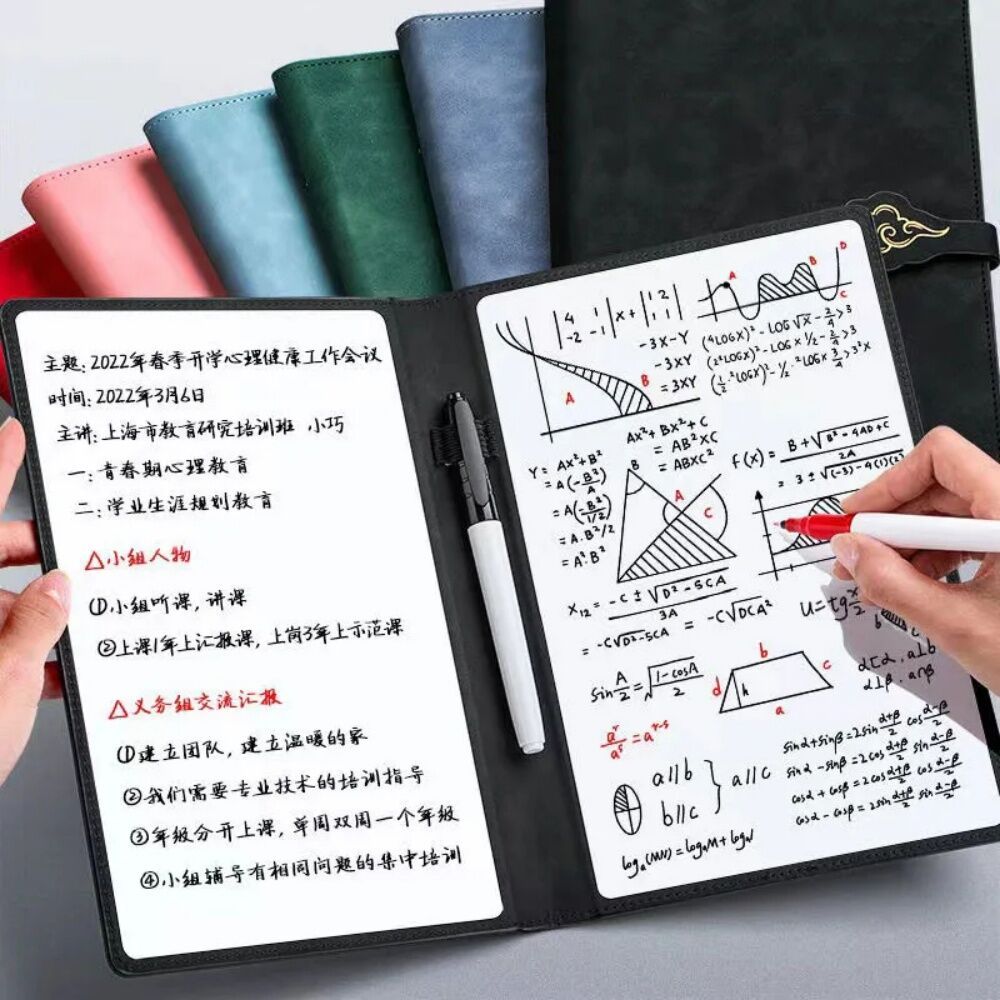 主题:2022年春季开学心理健康工作会议
时间:2022年3月6日
主讲:上海市教育研究培训班 小巧
一:青春期心理教育
二:学业生涯规划教育
△小组人物
①小组听课,讲课
②上课1年上汇报课,上岗3年上示范课
△义务组交流汇报
①建立团队,建立温暖的家
②我们需要专业技术的培训指导
③年级分开上课,单周双周一个年级
④小组辅导有相同问题的集中培训
A B C D
|4 1| x + |1 2|
|-2 -1| |1 1|
-3X-Y
-3XY
=3XY
A B
(4LOGX)² - LOG√X - 2/4 > 3
(2²LOGX)² - LOGX 1/2 - 2/4 > 3
AX²+BX²+C
= AB²XC
= ABXC²
Y = AX²+B²
=A(-B²/A)
=A(-B²/1/2)
=A.B²/2
=A².B²
B A C
f(x) = B+√B²-4AD+C / 2A
= 3 ± √(-3)-4(1)(2)
X₁₂ = -C±√D²-5CA / 3A
= -C√D²-5CA = -C√DCA²
U=tg x/2
sin A/2 = √1-cosA / 2
b d h c a
α⊥β . a∩b
aʳ/aˢ = aʳ⁻ˢ
a//b
b//c
a//c
sinα+sinβ=2sin α+β/2 cos α-β/2
sinα-sinβ=2cos α+β/2 sin α-β/2
cosα+cosβ=2cos α+β/2 cos α-β/2
cosα-cosβ=2sin α+β/2 sin α-β/2
logₐ(MN)=logₐM+logₐN